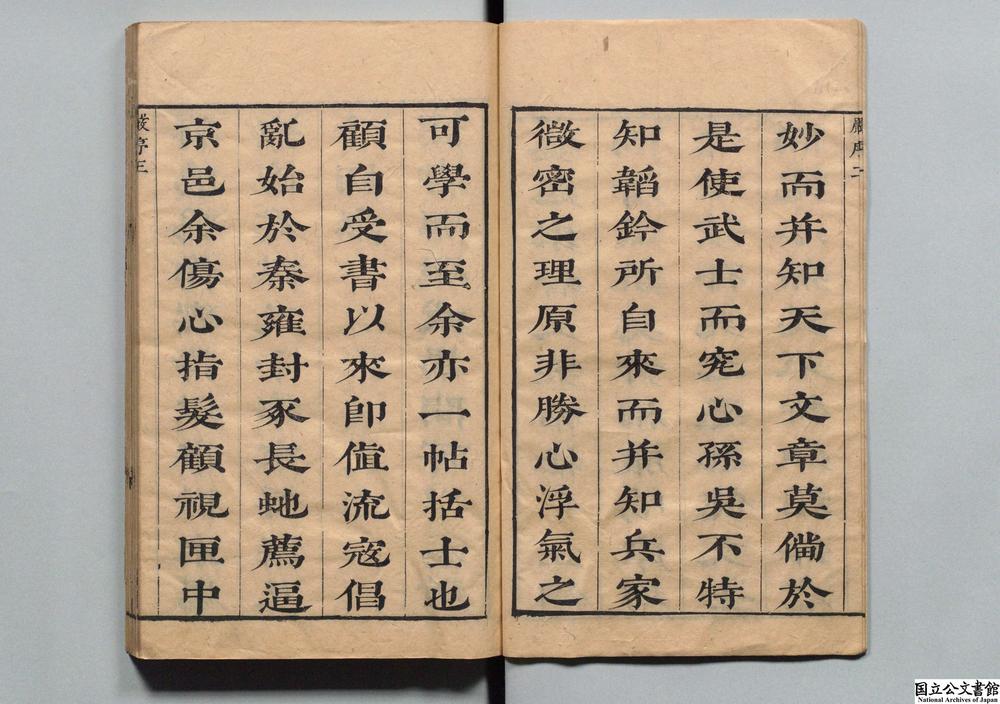 妙而并知天下文章莫僃於
是使武士而究心孫吳不特
知韜鈐所自來而并知兵家
微密之理原非勝心浮氣之
可學而至余亦一帖括士也
顧自受書以來卽值流寇倡
亂始於秦雍封豕長虵薦逼
京邑余傷心指髮顧視匣中
嚴序二
嚴序三
国立公文書館
National Archives of Japan